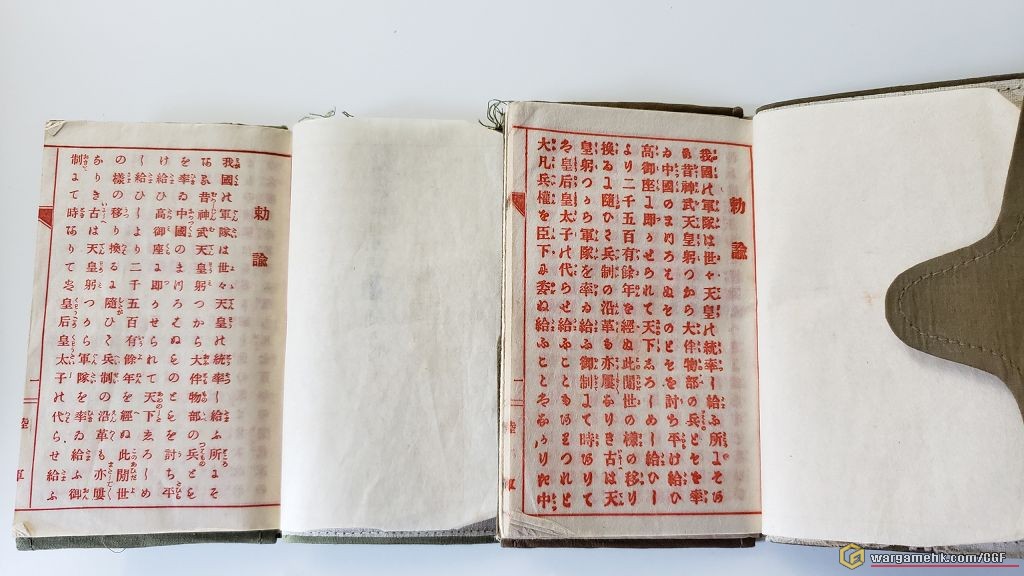 勅諭
我國の軍隊は世々天皇の統率し給ふ所にそ
ある昔神武天皇躬つから大伴物部の兵とも
を率ゐ中國のまつろはぬものともを討ち平
け給ひ高御座に即かせられて天下しろしめ
し給ひしより二千五百有餘年を經ぬ此間世
の樣の移り換るに隨ひて兵制の沿革も亦屢
なりき古は天皇躬つから軍隊を率ゐ給ふ御
制にて時ありては皇后皇太子の代らせ給ふ
勅諭
我國の軍隊は世々天皇の統率し給ふ所にそある
昔神武天皇躬つから大伴物部の兵ともを率
ゐ中國のまつろはぬものともを討ち平け給ひ
高御座に即かせられて天下しろしめし給ひし
より二千五百有餘年を經ぬ此間世の樣の移り
換るに隨ひて兵制の沿革も亦屢なりき古は天
皇躬つから軍隊を率ゐ給ふ御制にて時ありて
は皇后皇太子の代らせ給ふこともありつれと
大凡兵權を臣下に委ね給ふことはなかりき中
wargamehk.com/CGF